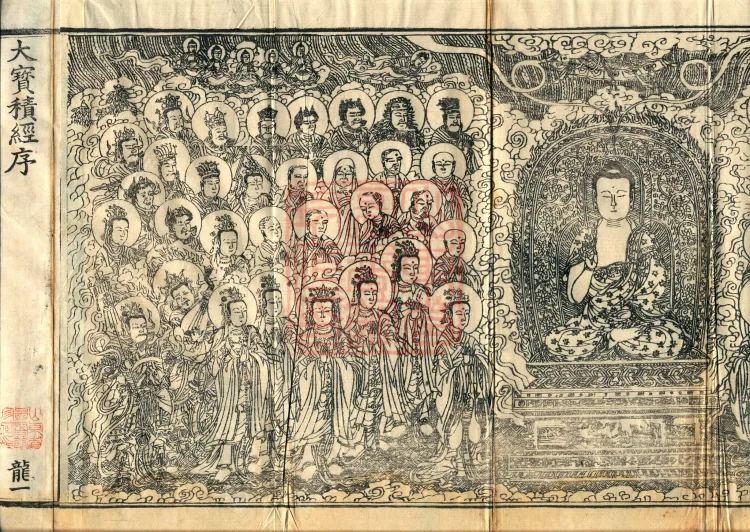 大寶積經序
龍一